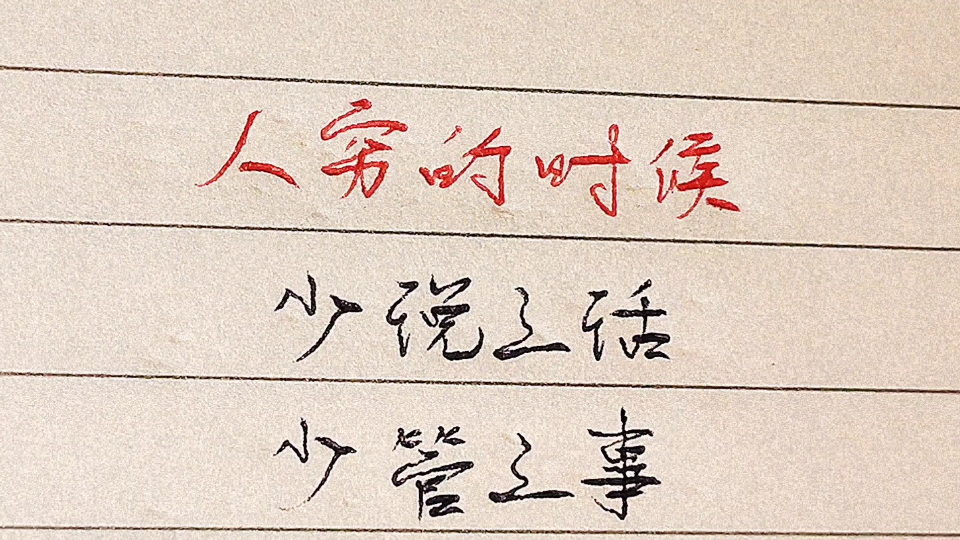 人穷的时候
少说三话
少管三事